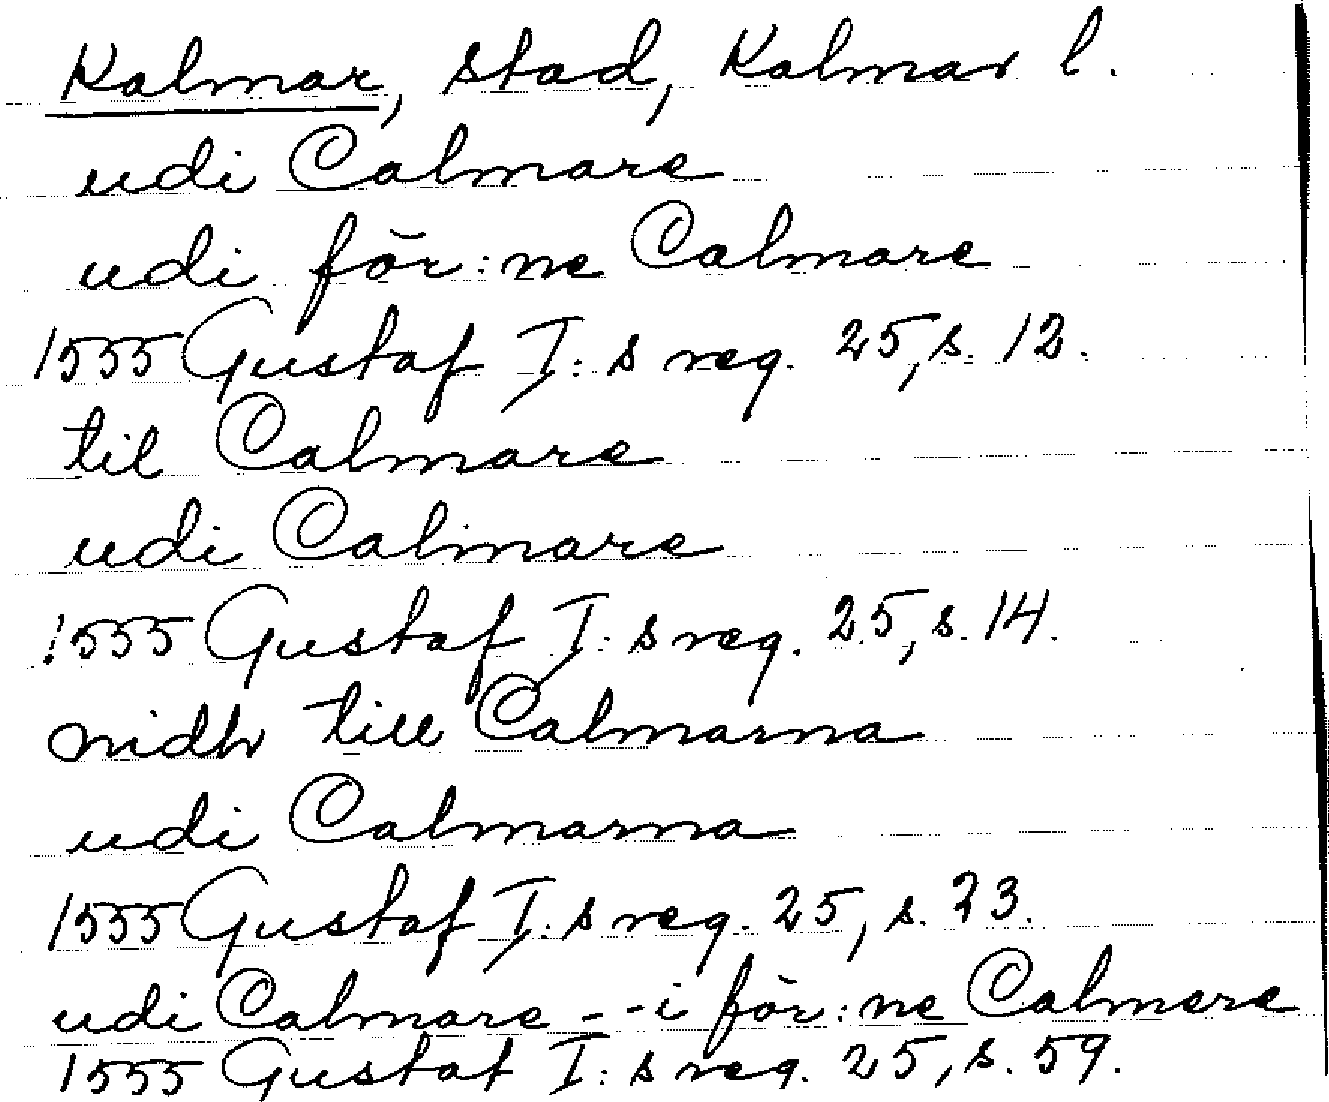 Kalmar, stad, Kalmar l.
udi Calmare
udi för:ne Calmare
1555 Gustaf I:s reg. 25, s. 12.
til Calmare
udi Calmare
1555 Gustaf I:s reg. 25, s. 14.
nidh till Calmarna
udi Calmarna
1555 Gustaf I:s reg. 25, s. 23.
udi Calmare - - i för:ne Calmare
1555 Gustaf I:s reg. 25, s. 59.